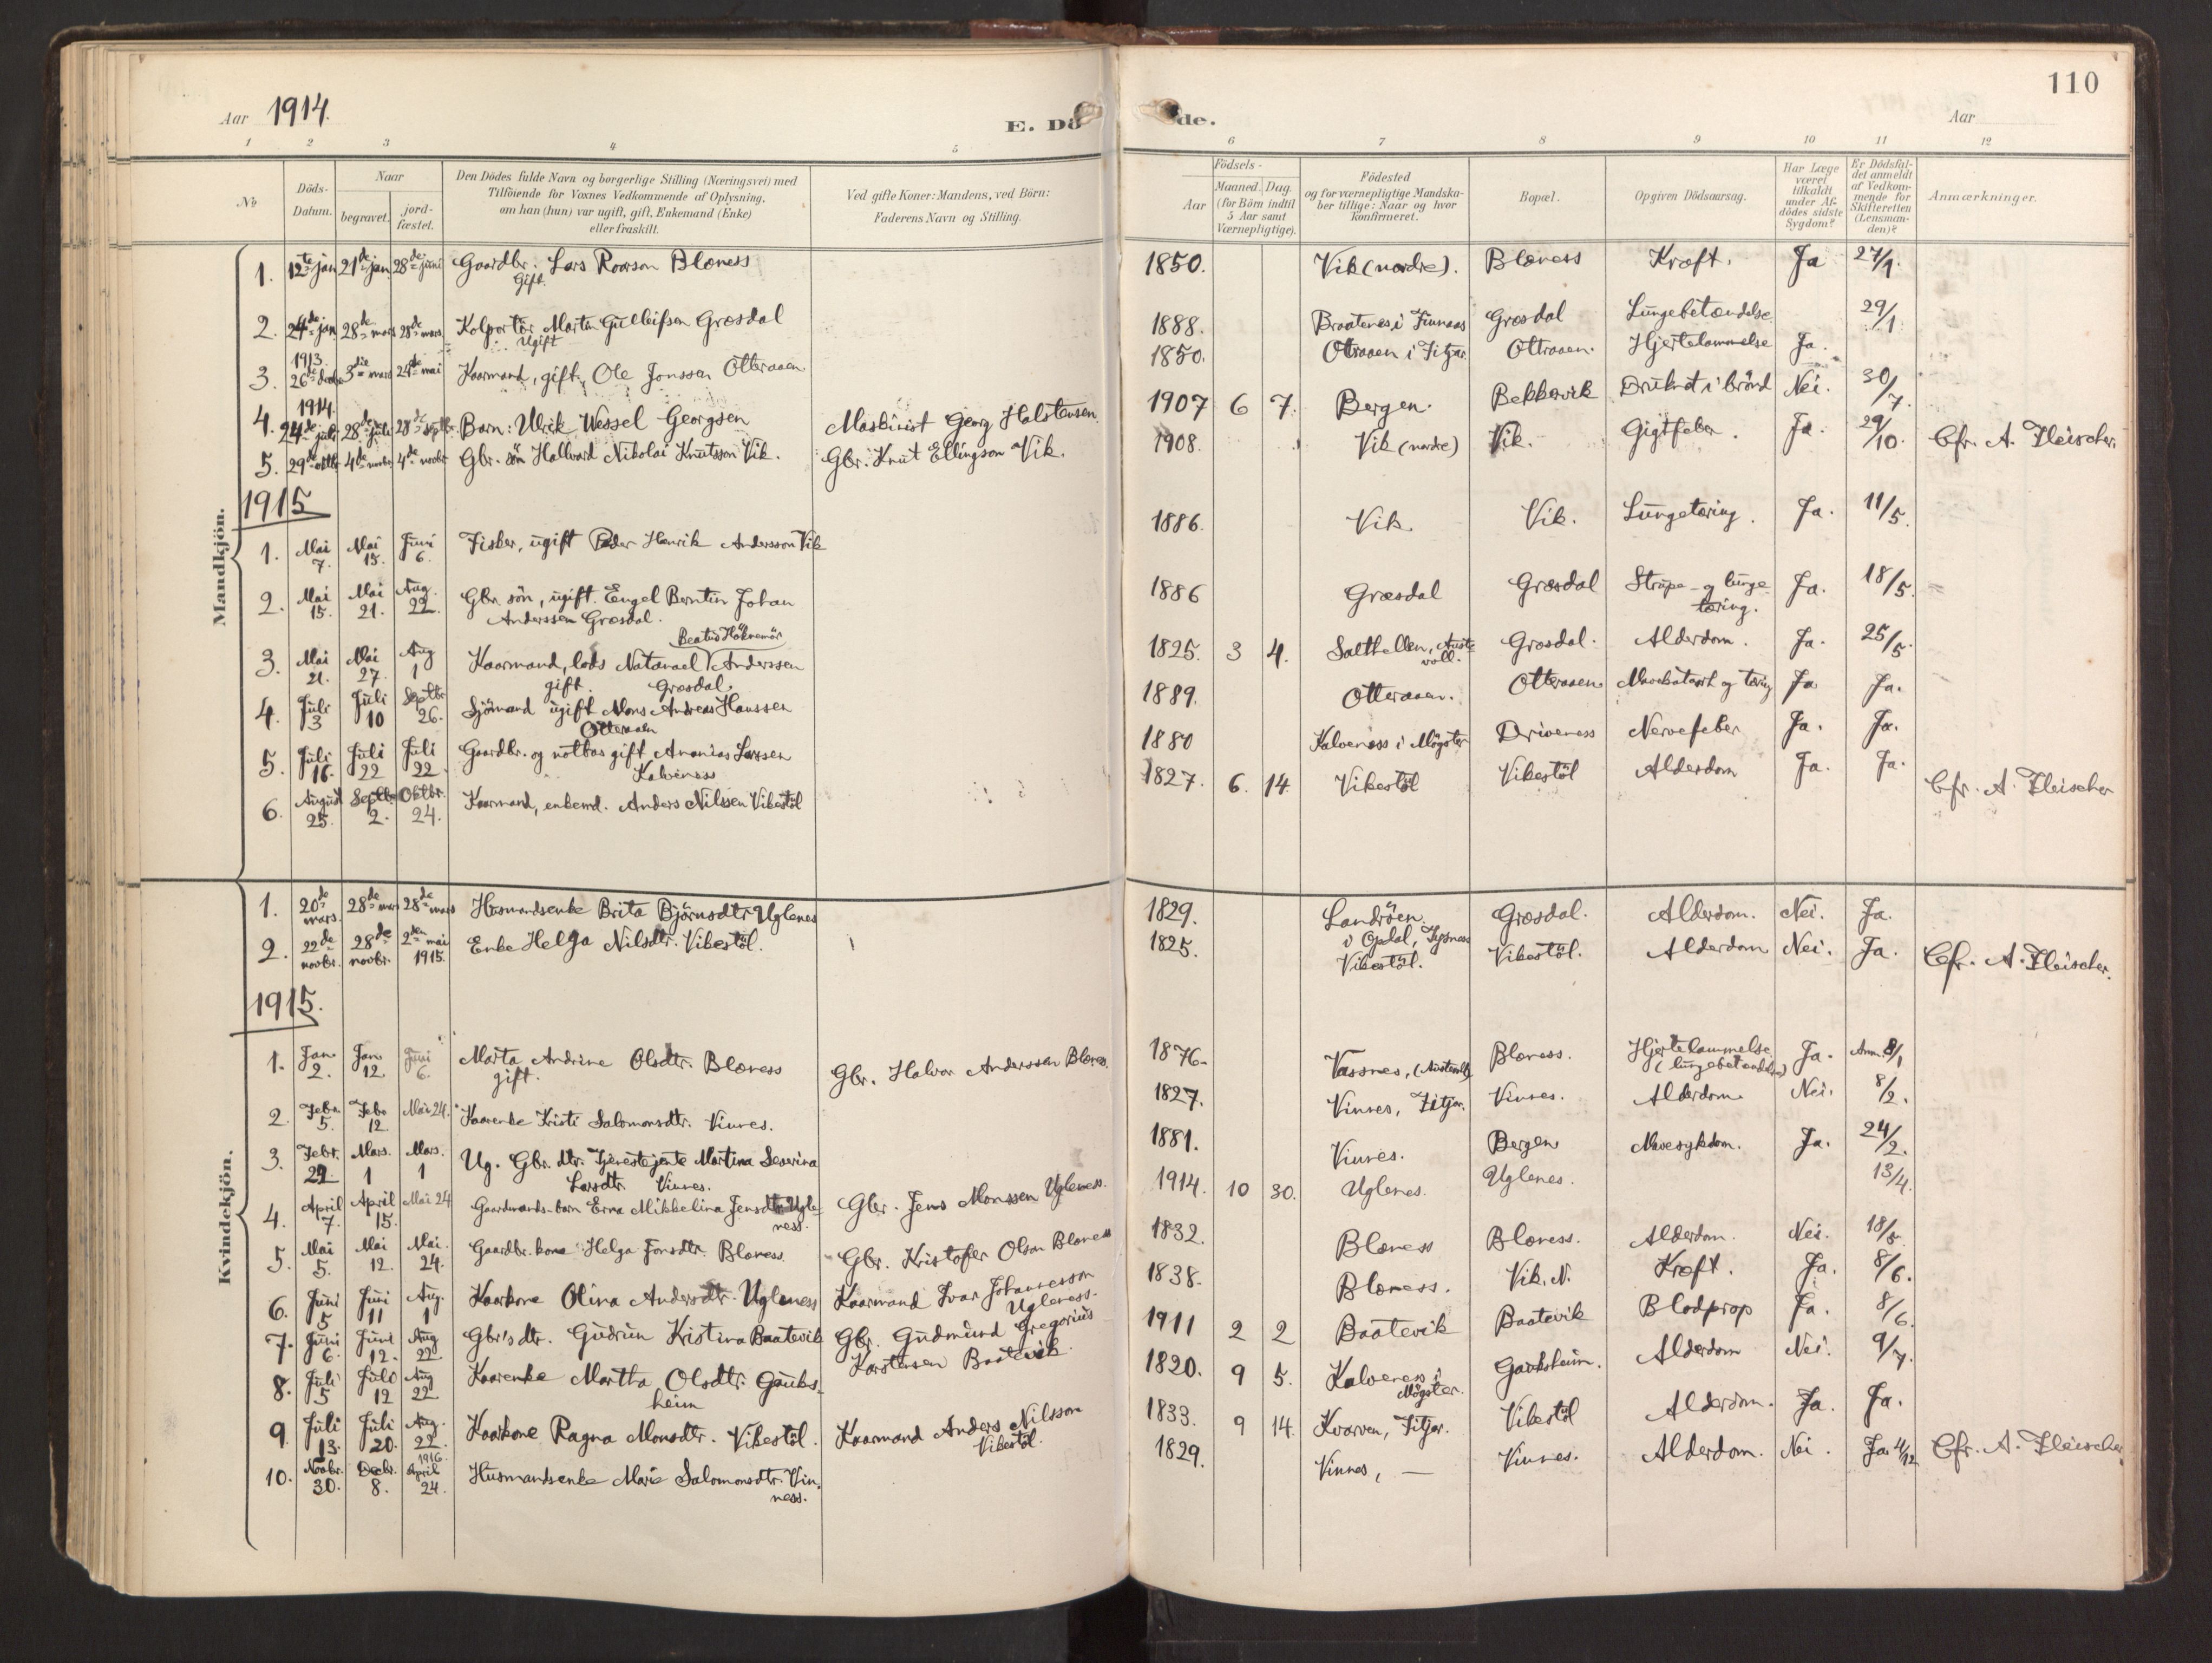 Aar 1914.
E. Dö de.
Aar
110
1 2 3 4 5 6 7 8 9 10 11 12
No
Döds-Datum.
Naar
begravet.
jord-fæstet.
Den Dödes fulde Navn og borgerlige Stilling (Næringsvei) med
Tilföiende for Voxnes Vedkommende af Oplysning,
om han (hun) var ugift, gift, Enkemand (Enke)
eller fraskilt.
Ved gifte Koner: Mandens, ved Börn:
Faderens Navn og Stilling.
Födsels-
Aar
Maaned. Dag.
(for Börn indtil
5 Aar samt
Værnepligtige).
Födested
og for værnepligtige Mandska-
ber tillige: Naar og hvor
konfirmeret.
Bopæl.
Opgiven Dödsaarsag.
Har Læge
været
tilkaldt
under Af-
dödes sidste
Sygdom?
Er Dödsfal-
det anmeldt
af Vedkom-
mende for
Skifteretten
(Lensman-
den)?
Anmærkninger.
Mandkjön.
1. 12te jan 21de jan 28de juni Gaardbr. Lars Roarson Blæness 1850. Vik (nordre). Blæness Kræft. Ja 27/1.
Gift.
2. 24de jan 28de mars 28de mars Kolportör Marten Gulleifsen Græsdal 1888. Braatenes i Finnaas Græsdal Lungebetændelse 29/1
Ugift
1913.
3. 26de decbr 3die mars 24de mai Kaarmand, gift, Ole Jonssen Otteraaen 1850. Otraaen i Fitjar Ottraaen. Hjertelammelse Ja.
1914.
4. 24de juli 28de juli 28de septbr. Barn: Ulrik Wessel Georgsen Maskinist Georg Halstensen 1907 6 7. Bergen. Bekkervik Druknet i brönd Nei. 30/7.
5. 29de oktbr 4de novbr 4de novbr Gbr. sön Hallvard Nikolai Knutsson Vik. Gbr. Knut Ellingson Vik. 1908. Vik (nordre) Vik. Gigtfeber. Ja. 29/10. Cfr. A. Fleischer.
1915
1. Mai 7. Mai 15. Juni 6. Fisker, ugift Peder Henrik Andersson Vik 1886. Vik. Vik. Lungetæring. Ja. 11/5.
2. Mai 15. Mai 21. Aug. 22. Gbr. sön, ugift. Engel Berntin Johan 1886 Græsdal Græsdal Strupe- og lunge- Ja. 18/5.
Anderssen Græsdal. tæring.
3. Mai 21. Mai 27. Aug 1 Kaarmand, lods Natanael Anderssen 1825. 3 4. Salthellen, Auste Græsdal. Alderdom. Ja. 25/5.
gift. Græsdal. voll.
4. Juli 3 Juli 10 Septbr 26. Sjömand ugift Mons Andreas Hanssen 1889. Otteraaen. Otteraaen Mavekatarrh og tæring Ja Ja.
Otteraaen
5. Juli 16. Juli 22 Juli 22 Gaardbr. og notbas gift Ananias Larssen 1880 Kalveness i Mögster Driveness Nervefeber Ja. Ja.
Kalveness
6. August 25. Septbr 2. Oktbr. 24. Kaarmand, enkemd. Anders Nilssen Vikestöl 1827. 6. 14. Vikestöl Vikestöl Alderdom Ja. Ja. Cfr. A. Fleischer
Kvindekjön.
1. 20de mars. 28de mars 28de mars Husmandsenke Brita Björnsdtr. Uglenes 1829. Landröen Græsdal. Alderdom. Nei. Ja.
i Opdal, Tysnes
2. 22de novbr. 28de novbr. 2den mai 1915. Enke Helga Nilsdtr. Vikestöl. 1825. Vikestöl. Vikestöl. Alderdom Nei. Ja. Cfr. A. Fleischer.
1915.
1. Jan. 2. Jan 12. Juni 6. Marta Andrine Olsdtr. Blæness Gbr. Halvor Anderssen Blænes. 1876. Vassnes, (Austevoll) Blæness. Hjertelammelse Ja. Anm. 8/1
gift. (lungebetændelse)
2. Febr. 5. Febr 12. Mai 24. Kaarenke Kristi Salomonsdtr. Vinnes. 1827. Vinnes, Fitjar. Vinnes. Alderdom. Nei. 8/2.
3. Febr. 22. Mars. 1 Mars. 1 Ug. Gbr. dtr. Tjenestejente Martina Severina 1881. Vinnes. Bergen Mavesykdom. Ja. 24/2.
Larsdtr. Vinnes.
4. April 7. April 15. Mai 24 Gaardmands-barn Erna Mikkelina Jensdtr. Ugle- Gbr. Jens Monssen Uglenes. 1914. 10 30. Uglenes. Uglenes. 13/4.
ness.
5. Mai 5. Mai 12. Mai. 24. Gaardbr. kone Helga Jonsdtr. Blæness. Gbr. Kristofer Olson Blæness 1832. Blæness Blæness. Alderdom. Nei. 18/5
6. Juni 5 Juni 11 Aug. 1 Kaarkone Olina Andersdtr. Ugleness Kaarmand Ivar Johannesson 1838. Blæness. Vik. N. Kræft. Ja. 8/6.
Ugleness.
7. Juni 6. Juni 12. Aug 22. Gbr's dtr. Gudrun Kristina Baatevik Gbr. Gudmund Gregorius 1911 2 2 Baatevik Baatevik Blodprop Ja. 8/6.
Karstensen Baatevik.
8. Juli 5 Juli 12 Aug 22 Kaarenke Martha Olsdtr. Gauks- 1820. 9 5. Kalveness i Gauksheim. Alderdom Nei. 9/7.
heim Mögster.
9. Juli 13. Juli 20. Aug. 22. Kaarkone Ragna Monsdtr. Vikestöl. Kaarmand Anders Nilsson 1833. 9 14. Kvarven, Fitjar. Vikestöl Alderdom. Ja. Ja.
Vikestöl.
1916.
10. Novbr. 30. Decbr. 8. April 24. Husmandsenke Marie Salomonsdtr. Vin- 1829. Vinnes, — Vinnes. Alderdom. Nei. Ja. 4/12 Cfr. A. Fleischer
ness.